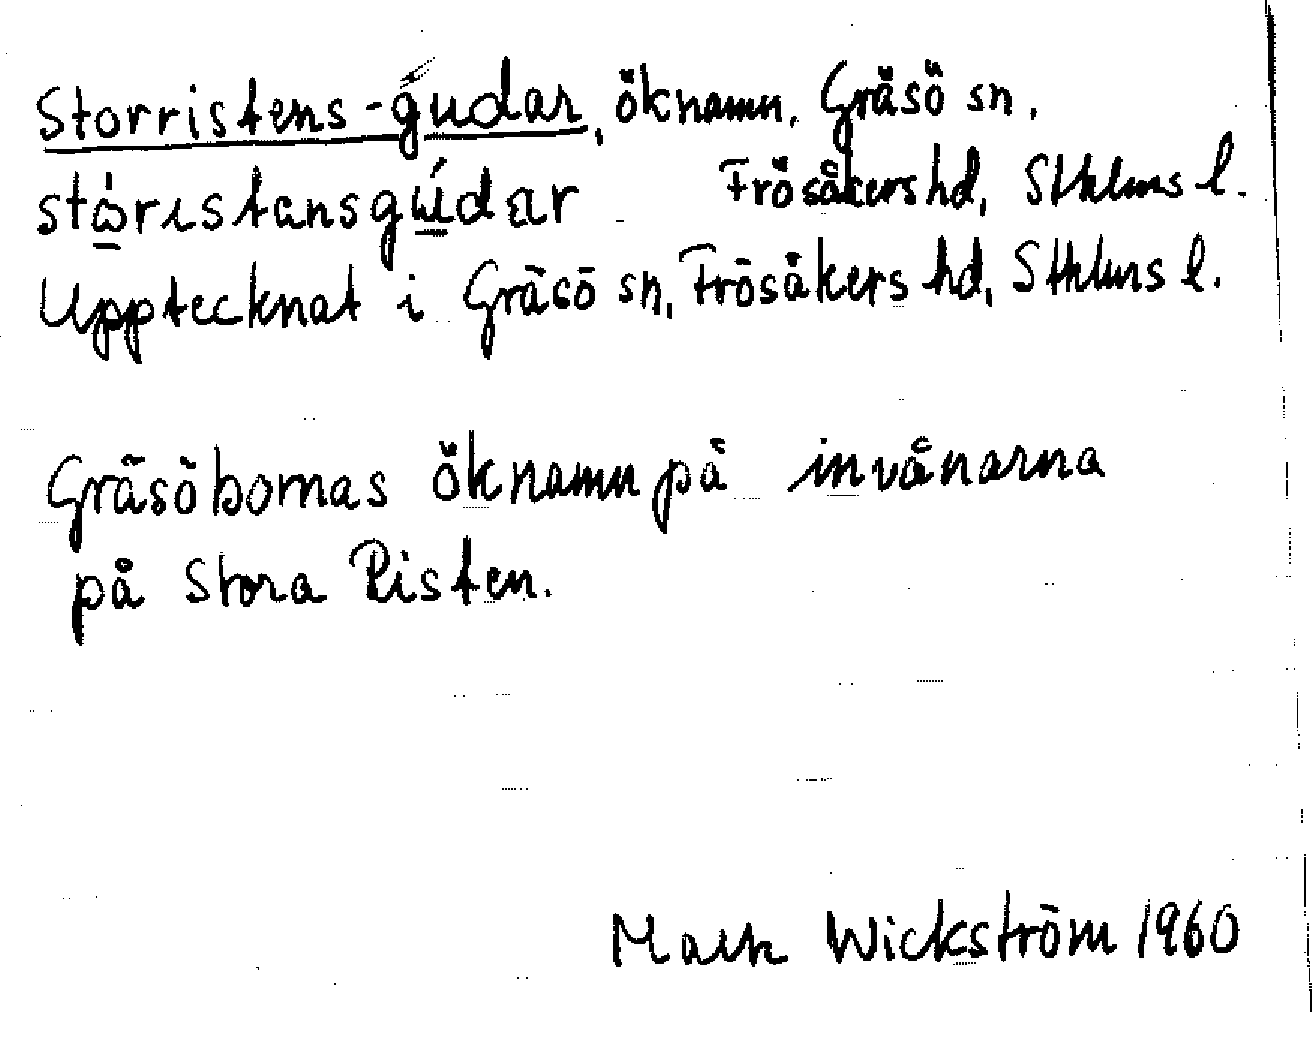 Storristens-gudar, öknamn, Gräsö sn,
Frösåkers hd, Sthlms l.
stòristansgúdar
Upptecknat i Gräsö sn, Frösåkers hd, Sthlms l.
Gräsöbornas öknamn på invånarna
på Stora Risten.
Wickström 1960